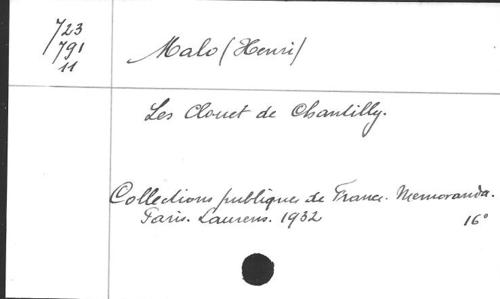 723
791
11
Malo (Henri)
Les Clouet de Chantilly.
Collections publiques de France. Memoranda.
Paris. Laurens. 1932 16°